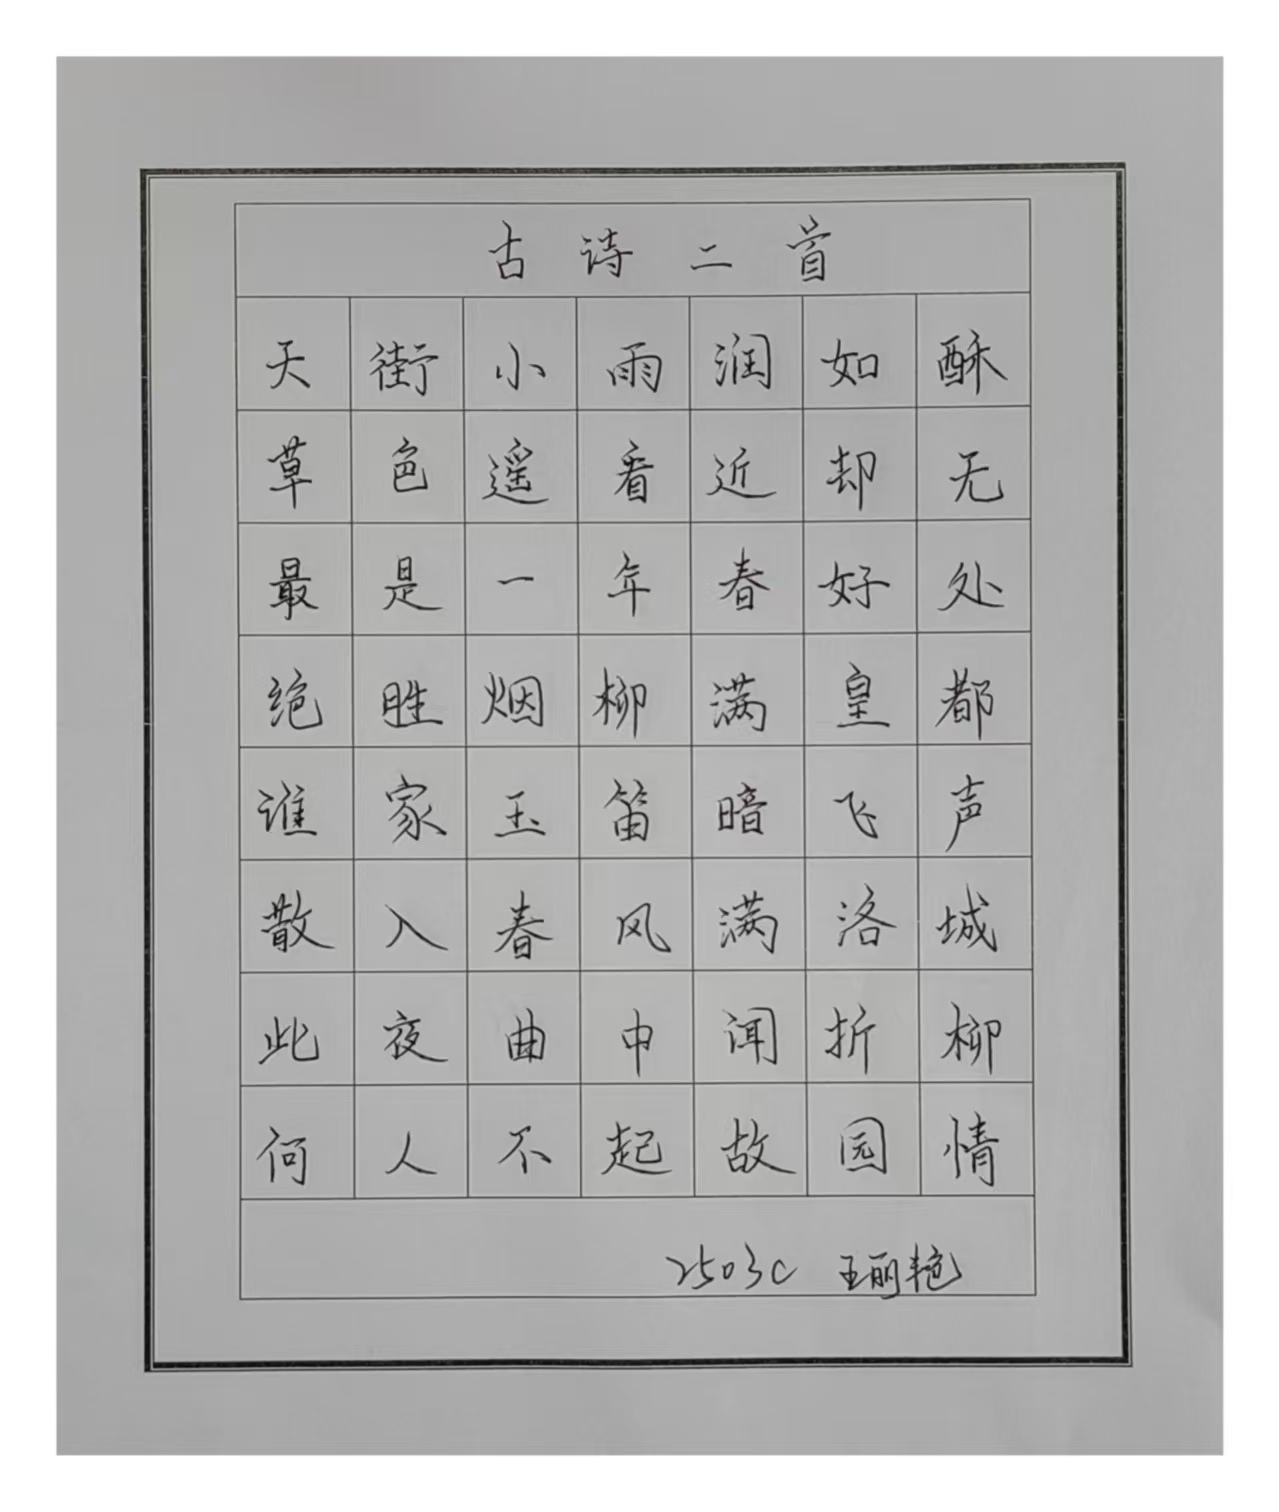 古诗二首
天街小雨润如酥
草色遥看近却无
最是一年春好处
绝胜烟柳满皇都
谁家玉笛暗飞声
散入春风满洛城
此夜曲中闻折柳
何人不起故园情
2503C 王丽艳